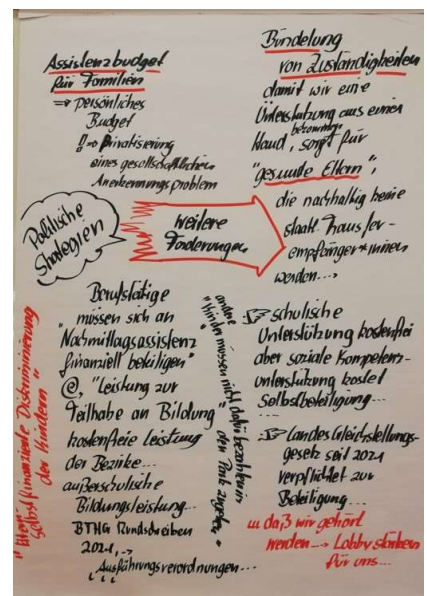 Assistenzbudget
für Familien
=> persönliches
Budget
!! => Privatisierung
eines gesellschaftlichen
Anerkennungsproblem
Bündelung
von Zuständigkeiten
damit wir eine
Unterstützung aus einer
Hand, bekommen sorgt für
"gesunde Eltern",
die nachhaltig keine
staatl. Transfer-
empfänger*innen
werden...
Politische
Strategien
weitere
Forderungen
Berufstätige
müssen sich an
"Nachmittagsassistenz
finanziell beteiligen"
@, "Leistung zur
Teilhabe an Bildung
kostenfreie Leistung
der Bezirke...
außerschulische
Bildungsleistung...
BTHG Rundschreiben
2021, ...
Ausführungsverordnungen...
"andere
Kinder müssen nicht dafür bezahlen in
den Park zu gehen"
schulische
Unterstützung kostenfrei
aber soziale Kompetenz-
unterstützung kostet
Selbstbeteiligung...
Landesgleichstellungs-
gesetz seit 2021
verpflichtet zur
Beteiligung...
... daß wir gehört
werden... Lobby stärken
für uns...
selbstfinanzierte Diskriminierung
der Kindern"